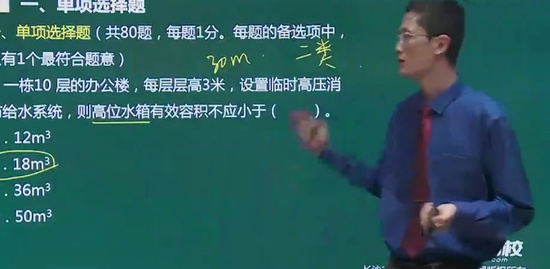 一、单项选择题
、单项选择题（共80题，每题1分。每题的备选项中，
有1个最符合题意）
30m 二类
．一栋10 层的办公楼，每层层高3米，设置临时高压消
给水系统，则高位水箱有效容积不应小于（ ）。
．12m³
．18m³
．36m³
．50m³
校
.com